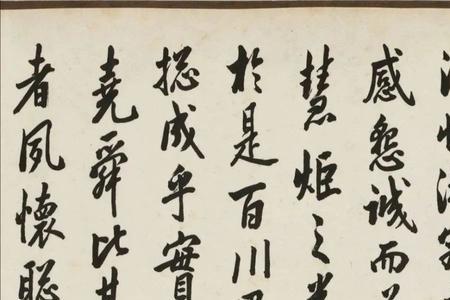 感懇誠而
慧炬之光
於是百川
揔成乎實
堯舜比其
者夙懷聦